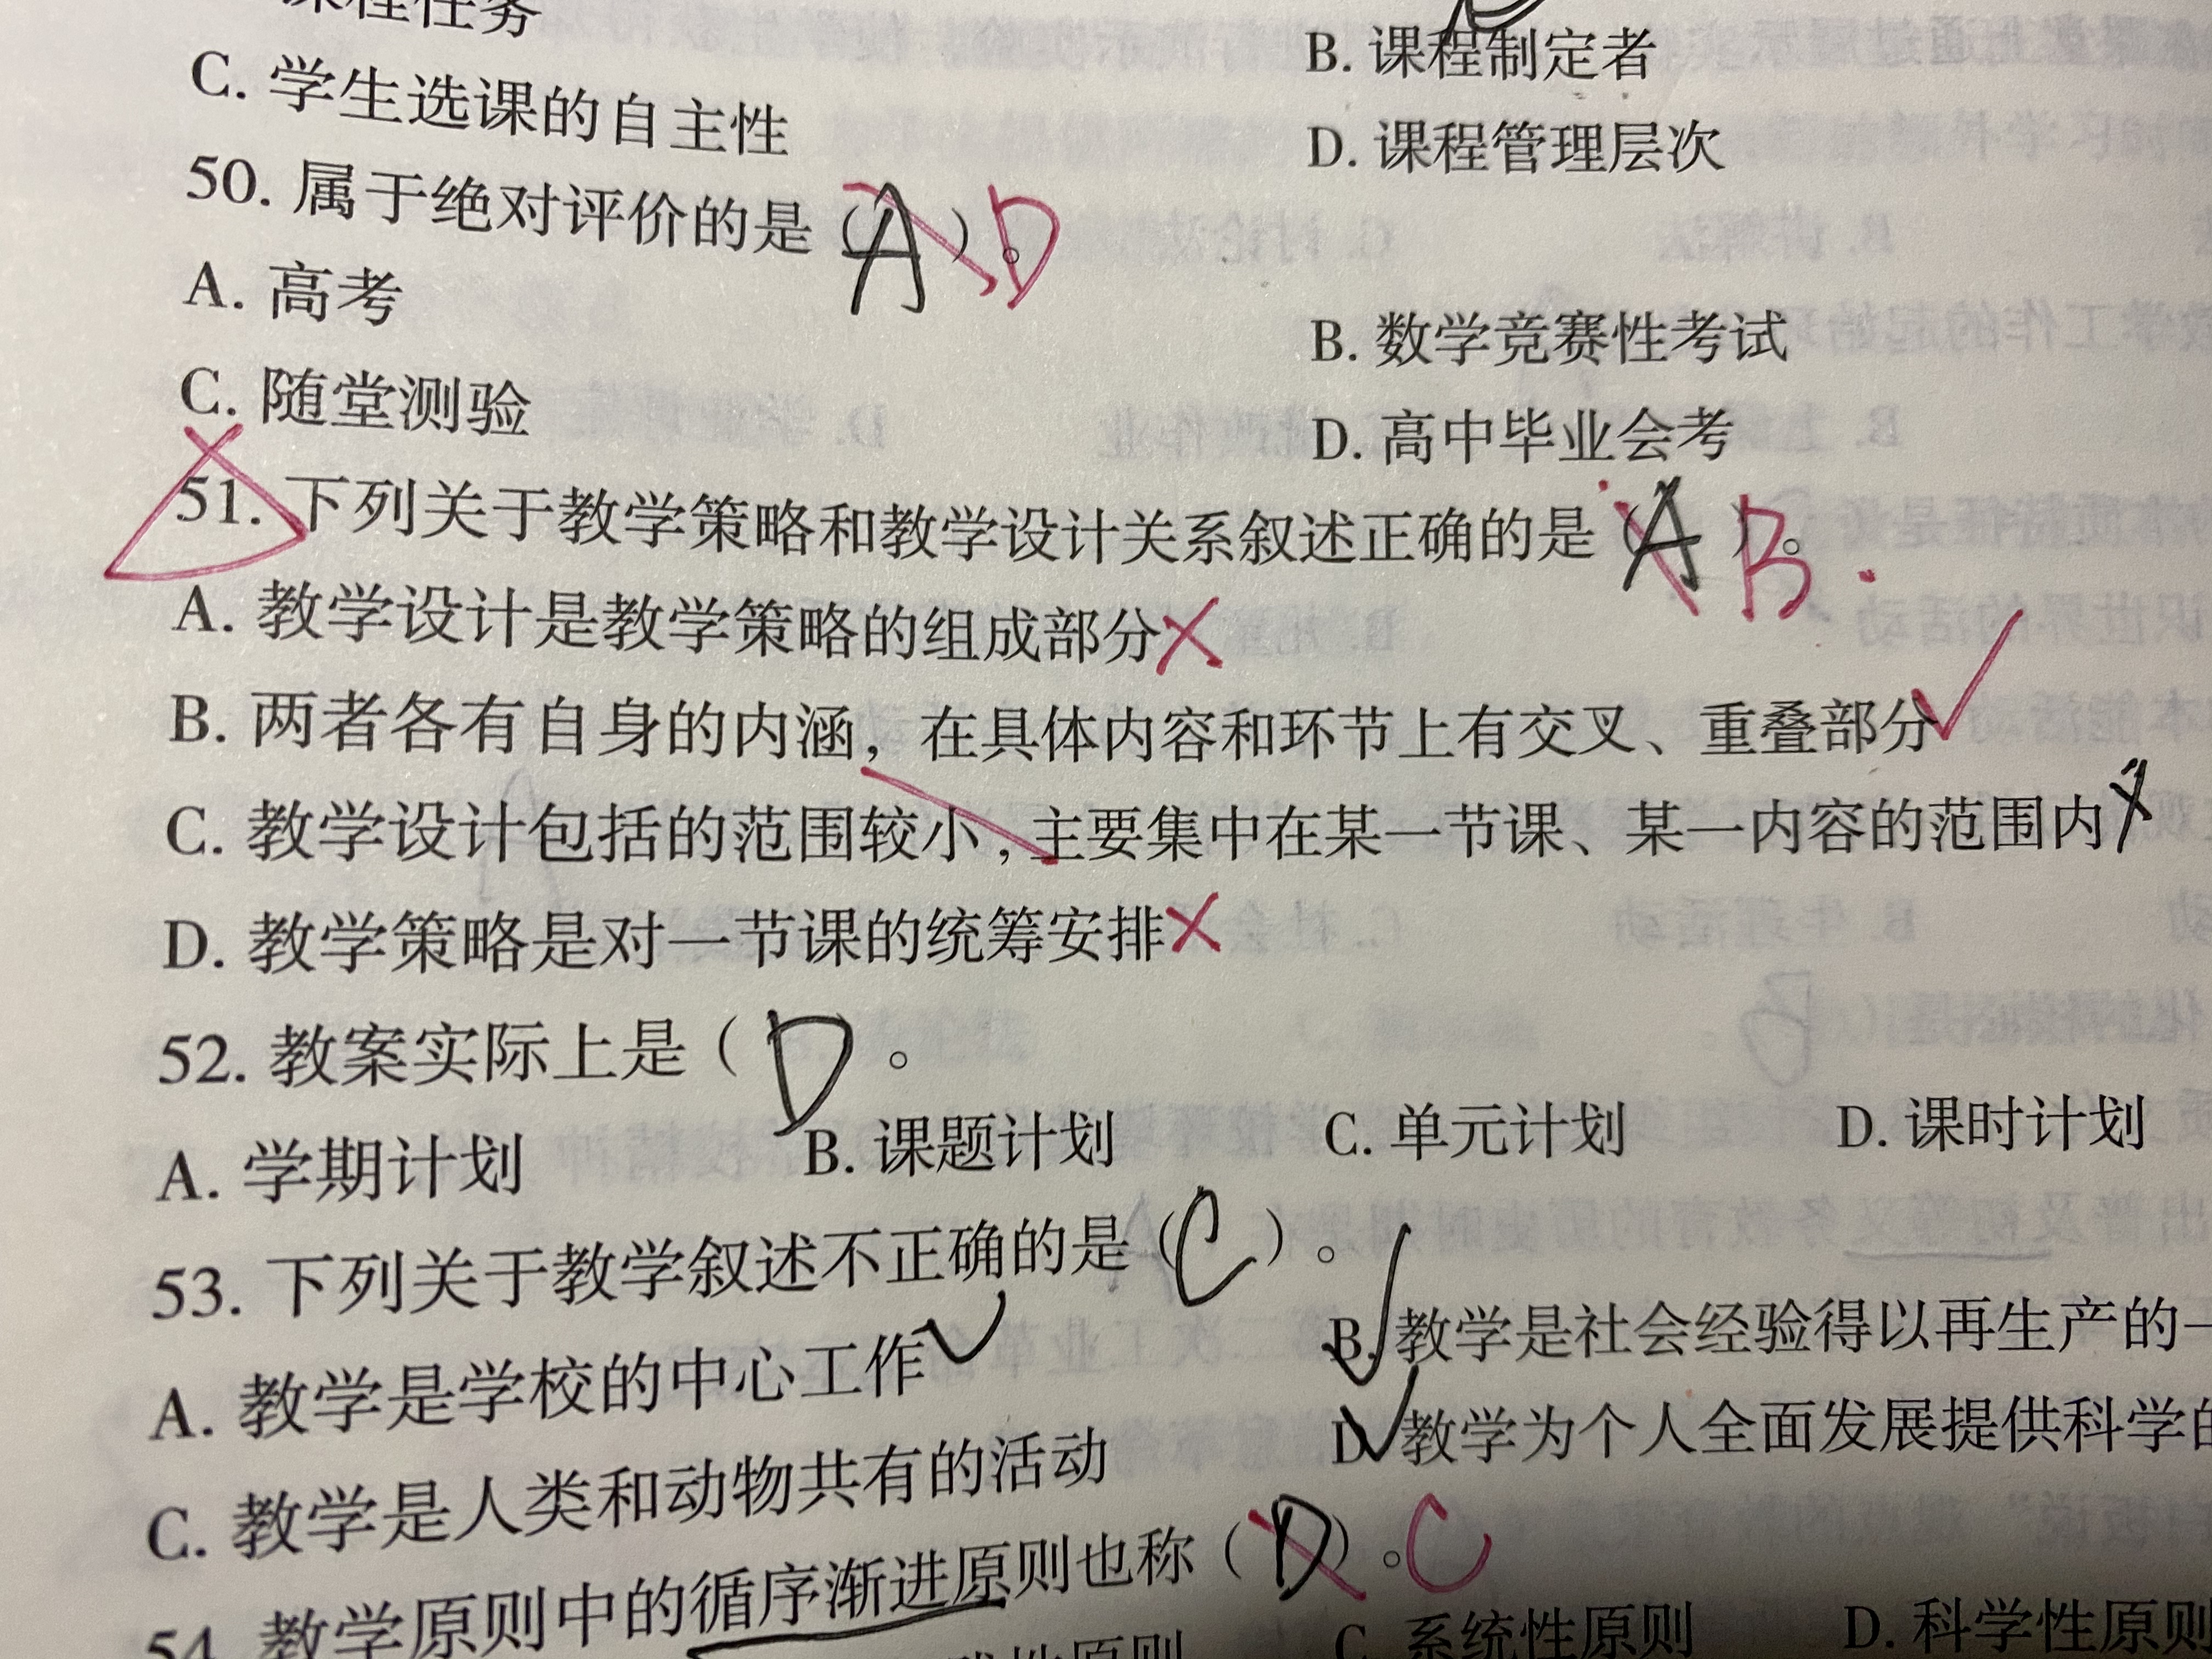 课程任务
B. 课程制定者
C. 学生选课的自主性
D. 课程管理层次
50. 属于绝对评价的是（A）。D
A. 高考
B. 数学竞赛性考试
C. 随堂测验
D. 高中毕业会考
51. 下列关于教学策略和教学设计关系叙述正确的是（A）。B.
A. 教学设计是教学策略的组成部分×
B. 两者各有自身的内涵，在具体内容和环节上有交叉、重叠部分✓
C. 教学设计包括的范围较小，主要集中在某一节课、某一内容的范围内×
D. 教学策略是对一节课的统筹安排×
52. 教案实际上是（D。
A. 学期计划 B. 课题计划 C. 单元计划 D. 课时计划
53. 下列关于教学叙述不正确的是（C）。
A. 教学是学校的中心工作✓
B. 教学是社会经验得以再生产的一
C. 教学是人类和动物共有的活动
D. 教学为个人全面发展提供科学的
54. 教学原则中的循序渐进原则也称（D）。C
性原则 C. 系统性原则 D. 科学性原则